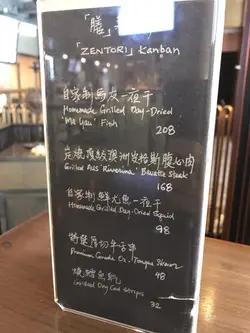 「膳
「ZENTORI」Kanban
自家制馬友一夜干
Homemade Grilled Day-Dried
"Ma Yau" Fish
208
炭燒頂級澳洲安格斯腹心肉
Grilled AUS "Riverina" Bavette Steak
168
自家制鮮尤魚一夜干
Homemade Grilled Day-Dried Squid
98
特選厚切牛舌串
Premium Canada Ox Tongue Skewer
48
燒鱈魚乾
Grilled Dry Cod Strips
32